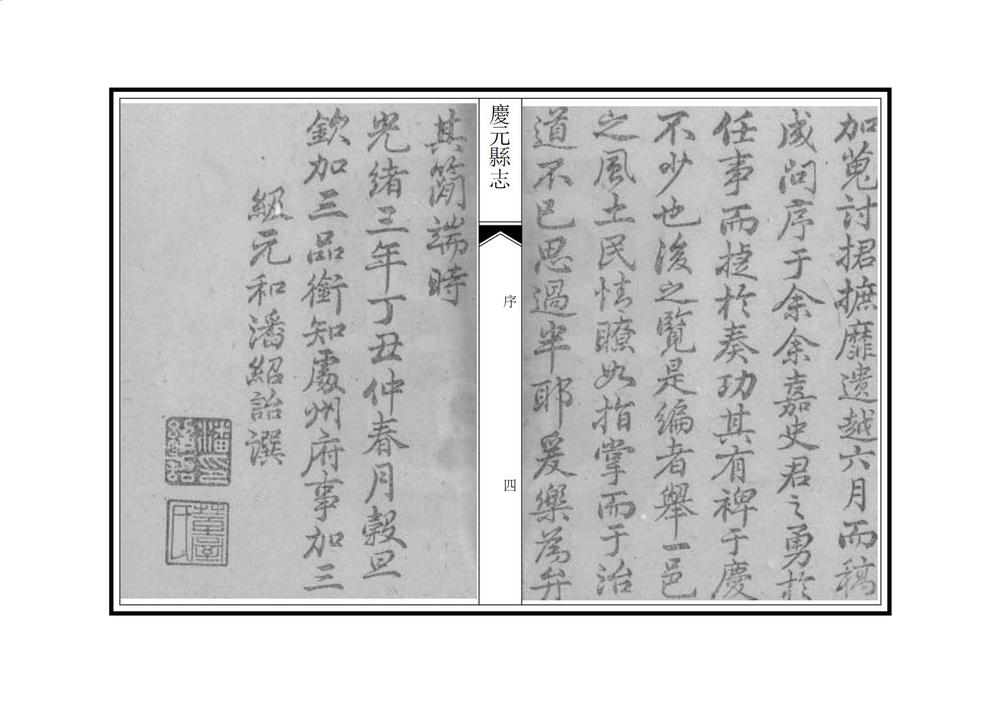 加蒐討捃摭靡遺越六月而稿
成問序于余余嘉史君之勇於
任事而捷於奏功其有裨于慶
不少也後之覽是編者舉一邑
之風土民情瞭如指掌而于治
道不已思過半耶爰樂為弁
慶元縣志
序
四
其簡端時
光緒三年丁丑仲春月穀旦
欽加三品銜知處州府事加三
級元和潘紹詒譔
潘印紹詒